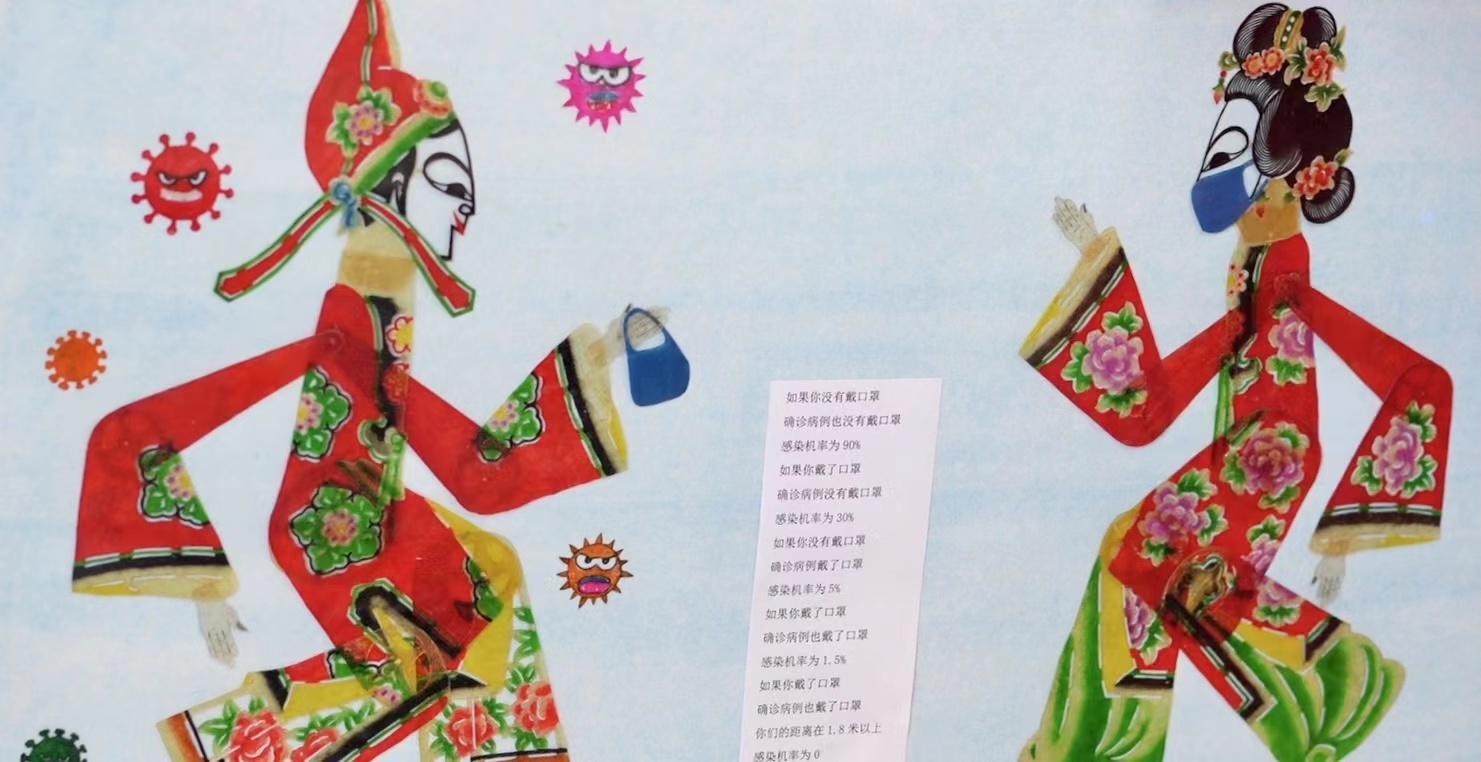 如果你没有戴口罩
确诊病例也没有戴口罩
感染机率为90%
如果你戴了口罩
确诊病例没有戴口罩
感染机率为30%
如果你没有戴口罩
确诊病例戴了口罩
感染机率为5%
如果你戴了口罩
确诊病例也戴了口罩
感染机率为1.5%
如果你戴了口罩
确诊病例也戴了口罩
你们的距离在1.8米以上
感染机率为0